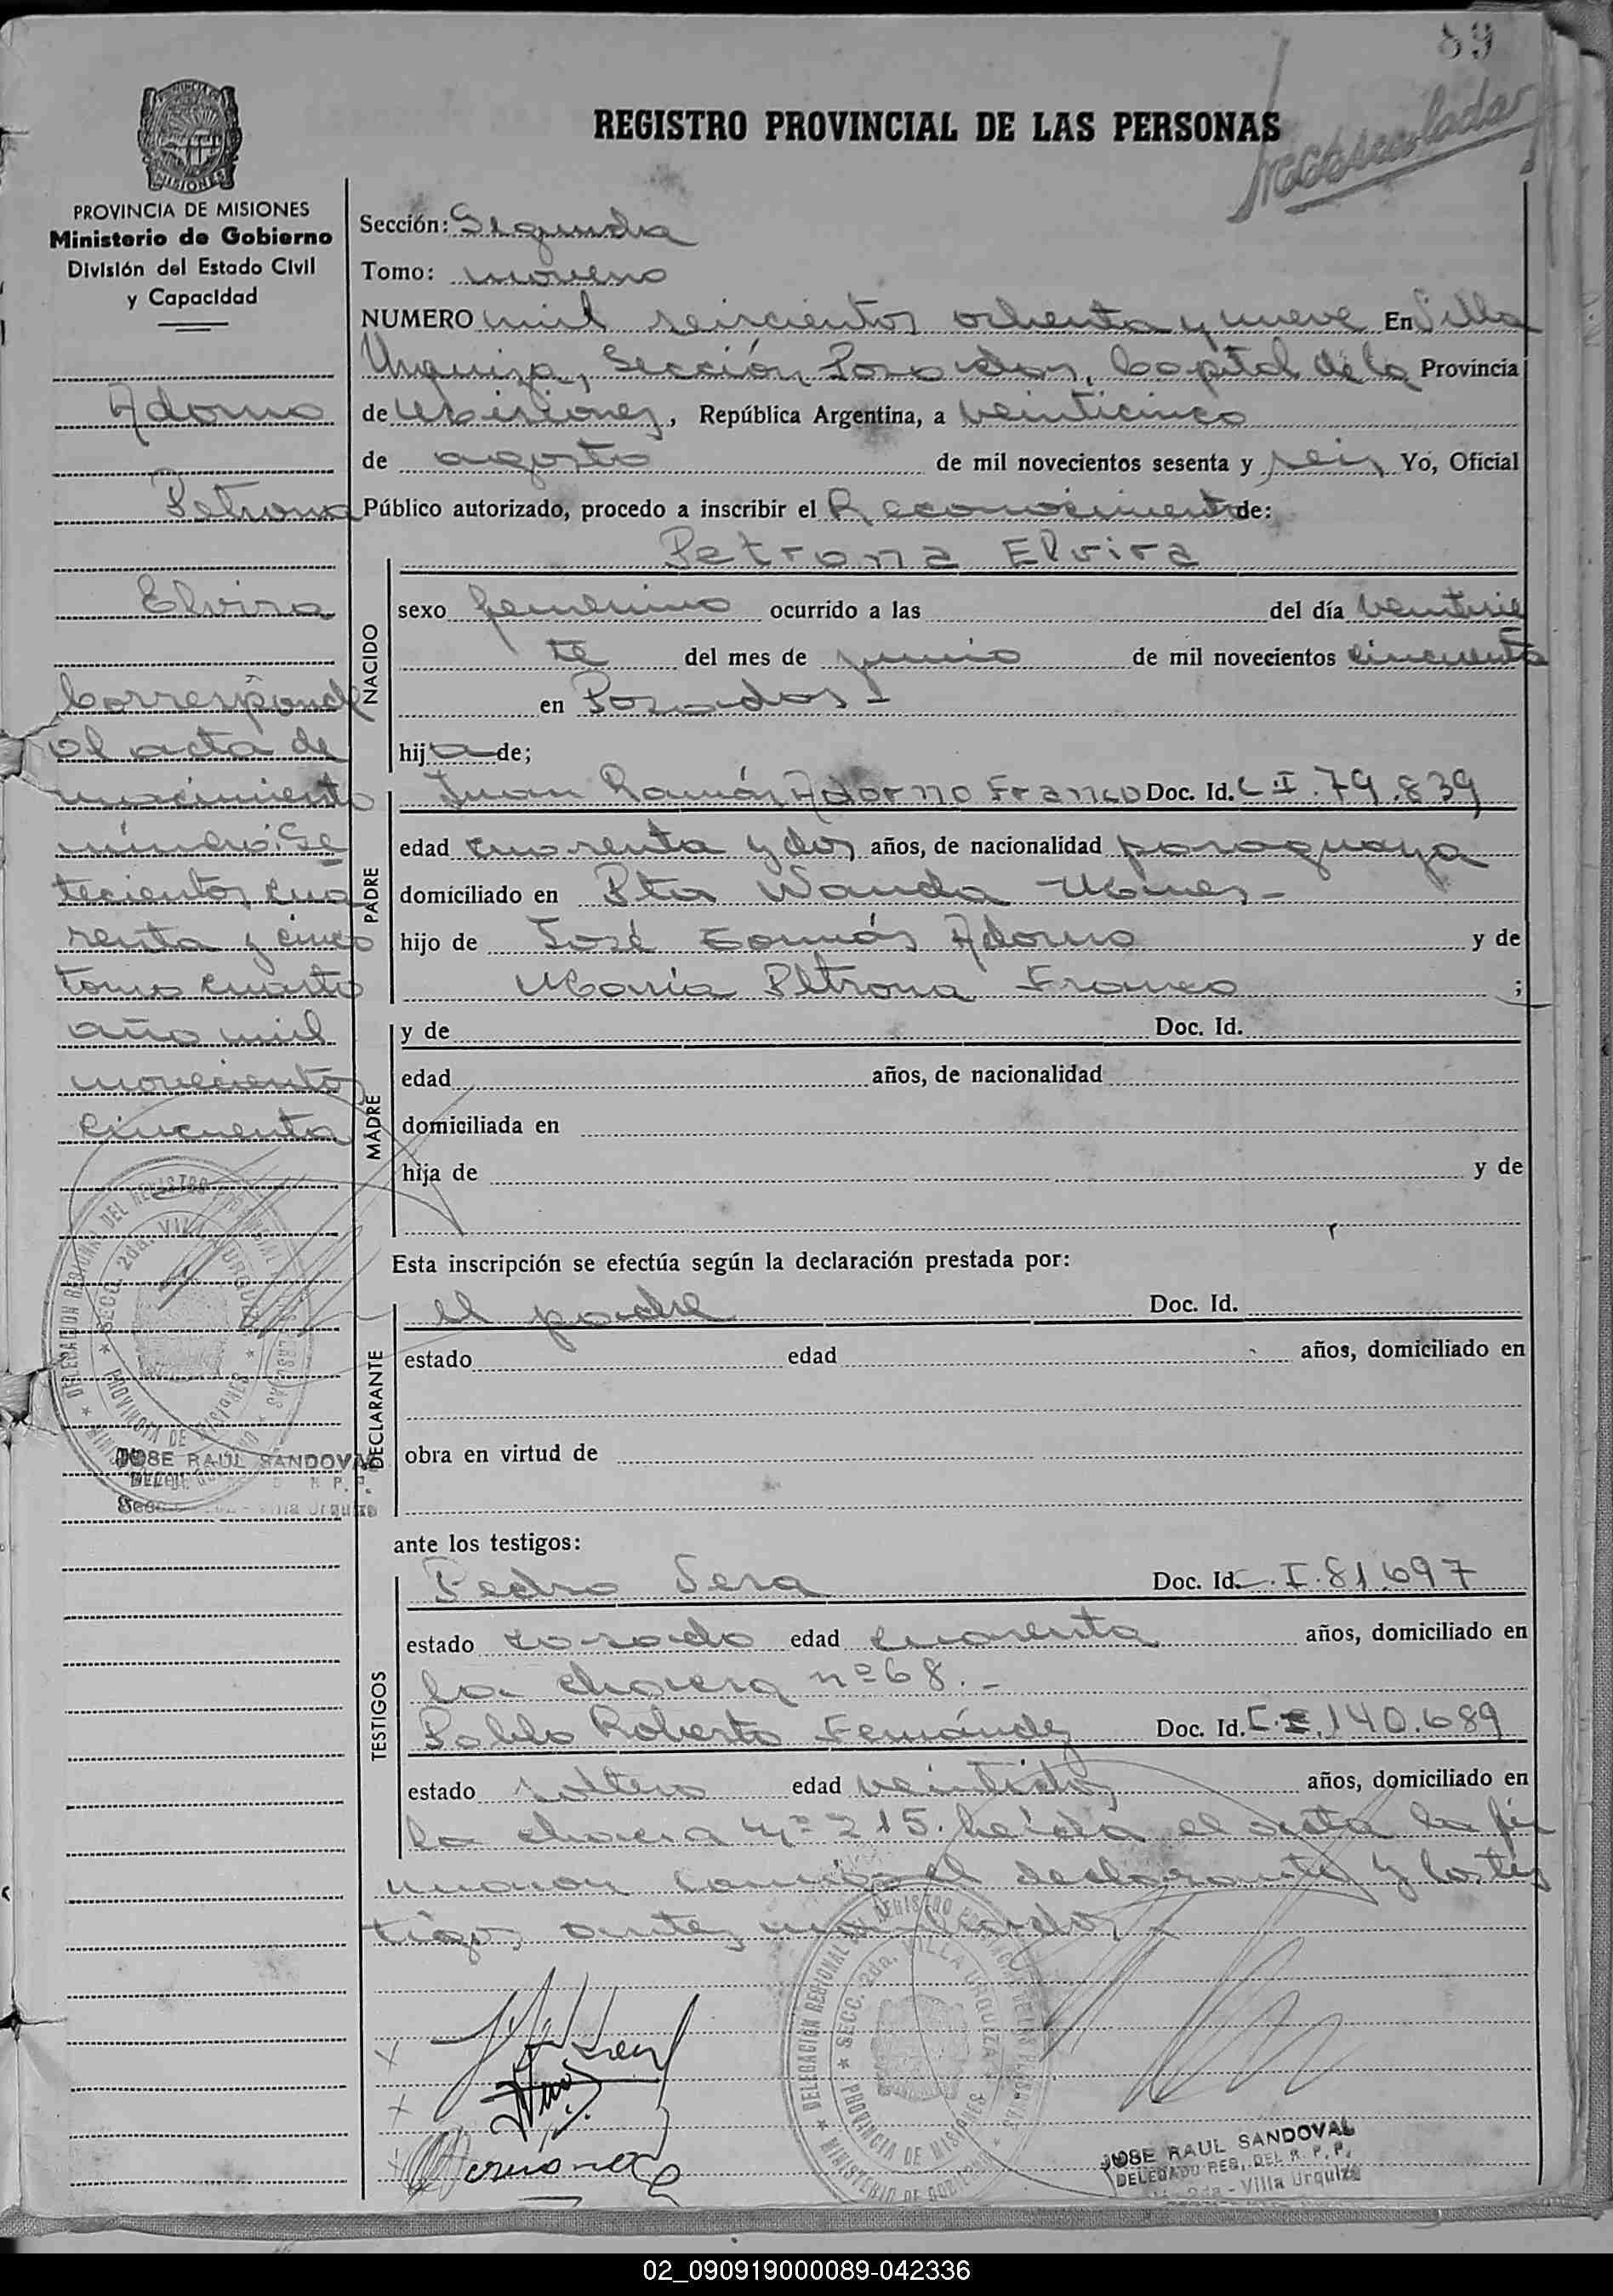 89
REGISTRO PROVINCIAL DE LAS PERSONAS
MISIONES
PROVINCIA DE MISIONES
Ministerio de Gobierno
División del Estado Civil
y Capacidad
Adorno
Petrona
Elvira
Corresponde
al acta de
nacimiento
número: Se
tecientos cua
renta y cinco
tomo cuarto
año mil
novecientos
cincuenta
JOSE RAUL SANDOVAL
Sección: Segunda
Tomo: noveno
NUMERO mil seiscientos ochenta y nueve En Villa
Urquiza, Sección Posadas, Capital de la Provincia
de Misiones, República Argentina, a veinticinco
de agosto de mil novecientos sesenta y seis Yo, Oficial
Público autorizado, procedo a inscribir el Reconocimiento de:
Petrona Elvira
NACIDO
sexo femenino ocurrido a las del día veintisie
te del mes de junio de mil novecientos cincuenta
en Posadas -
hija de;
PADRE
Juan Ramón Adorno Franco Doc. Id. C I. 79.839
edad cuarenta y dos años, de nacionalidad paraguaya
domiciliado en Pto Wanda Mnes -
hijo de José Tomás Adorno y de
María Petrona Franco ;
MADRE
y de Doc. Id.
edad años, de nacionalidad
domiciliada en
hija de y de
Esta inscripción se efectúa según la declaración prestada por:
DECLARANTE
el padre Doc. Id.
estado edad años, domiciliado en
obra en virtud de
ante los testigos:
TESTIGOS
Pedro Sera Doc. Id. C. I. 81.697
estado casado edad cuarenta años, domiciliado en
la chacra nº 68. -
Pablo Roberto Fernández Doc. Id. C. I. 140.689
estado soltero edad veintidos años, domiciliado en
la chacra nº 215. Leída el acta la fir
maron conmigo el declarante y los tes
tigos antes nombrados -
DELEGACION REGIONAL DEL REGISTRO PROVINCIAL DE LAS PERSONAS
SECC. 2da. VILLA URQUIZA
PROVINCIA DE MISIONES
MINISTERIO DE GOBIERNO
JOSE RAUL SANDOVAL
DELEGADO REG. DEL R. P. P.
2da - Villa Urquiza
02_090919000089-042336